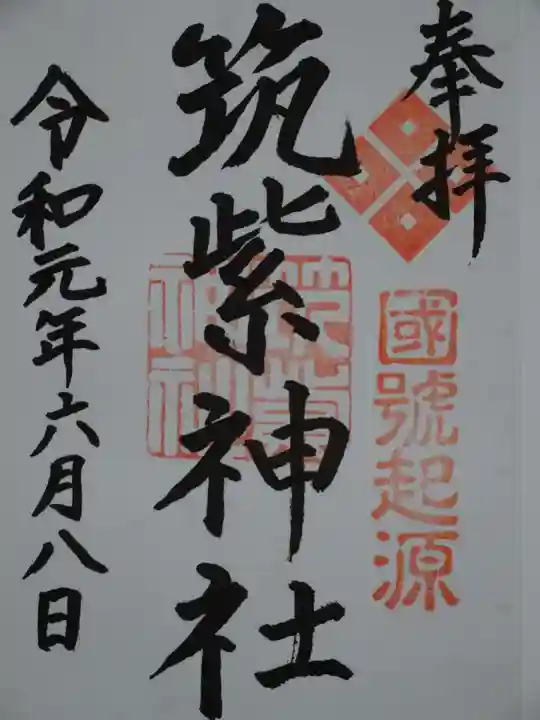 奉拝
國號起源
筑紫神社
筑紫神社
令和元年六月八日